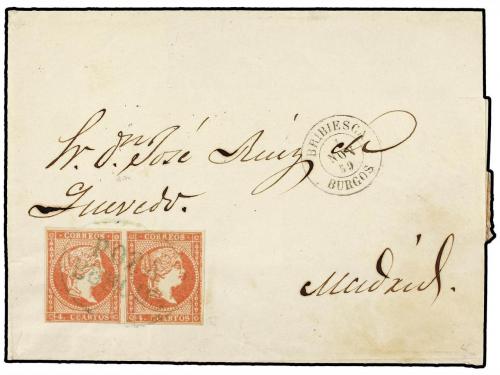 BRIBIESCA
NOV
59
BURGOS
Sr. Dn. José Ruiz de
Quevedo.
CORREOS CORREOS
4 CUARTOS 4 CUARTOS
Madrid.